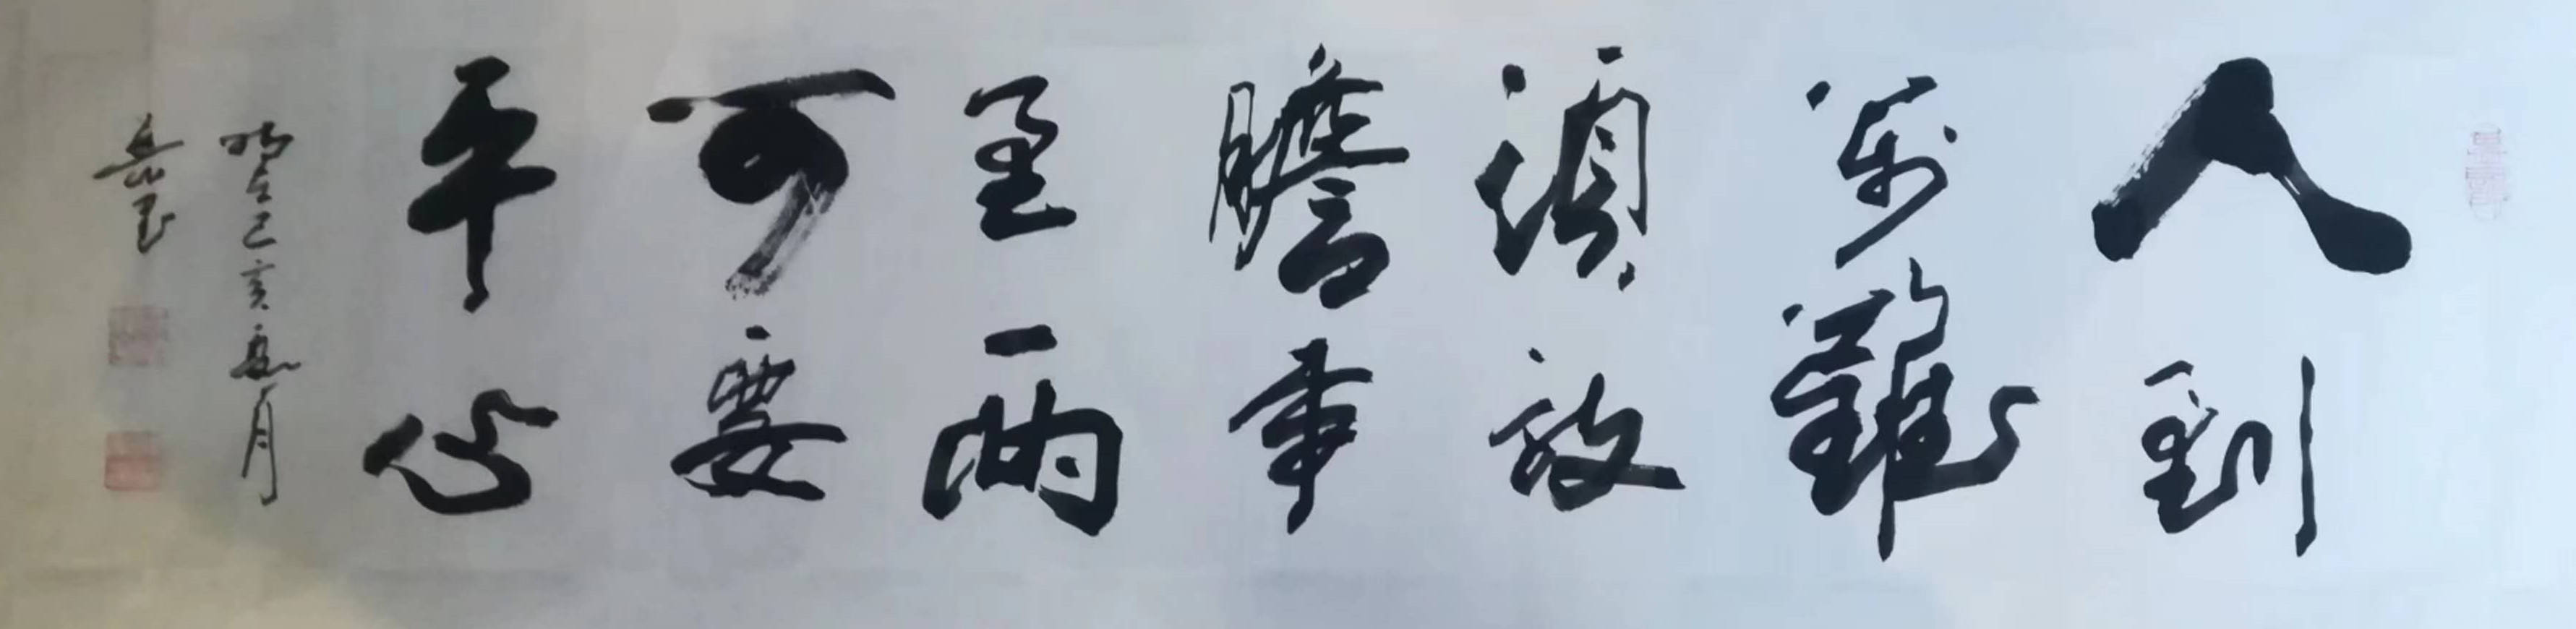 人到
萬難
須放
膽事
至兩
可要
平心
時在己亥夏月
岳玉